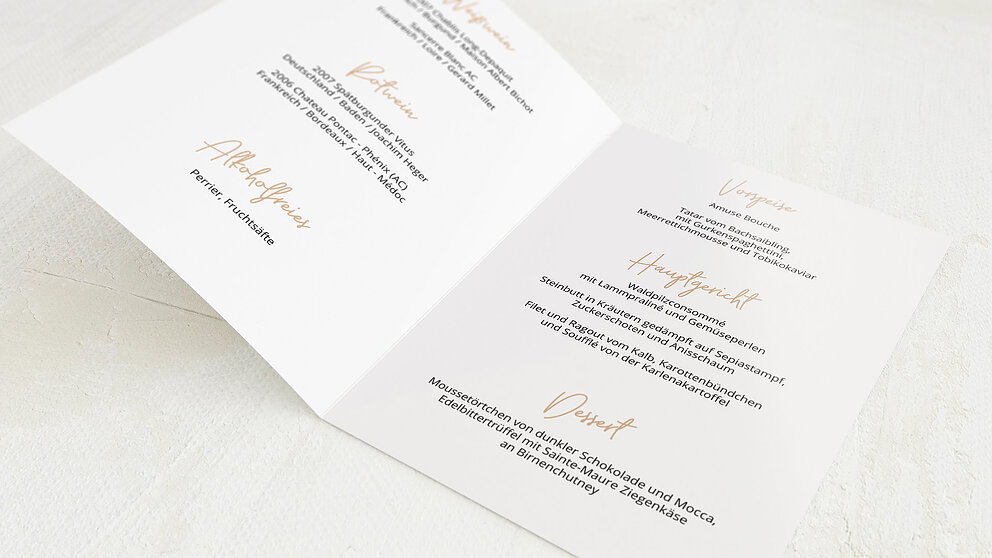 Weißwein
2007 Chablis Long-Depaquit
/ Burgund / Maison Albert Bichot
Sancerre Blanc AC
Frankreich / Loire / Gerard Millet
Rotwein
2007 Spätburgunder Vitus
Deutschland / Baden / Joachim Heger
2006 Chateau Pontac - Phénix (AC)
Frankreich / Bordeaux / Haut - Médoc
Alkoholfreies
Perrier, Fruchtsäfte
Vorspeise
Amuse Bouche
Tatar vom Bachsaibling,
mit Gurkenspaghettini,
Meerrettichmousse und Tobikokaviar
Hauptgericht
Waldpilzconsommé
mit Lammpraliné und Gemüseperlen
Steinbutt in Kräutern gedämpft auf Sepiastampf,
Zuckerschoten und Anisschaum
Filet und Ragout vom Kalb, Karottenbündchen
und Soufflé von der Karlenakartoffel
Dessert
Moussetörtchen von dunkler Schokolade und Mocca,
Edelbittertrüffel mit Sainte-Maure Ziegenkäse
an Birnenchutney